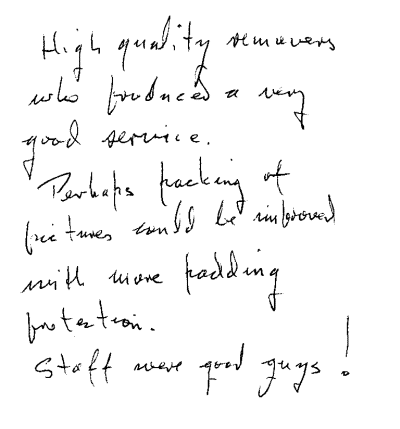 High quality removers
who produced a very
good service.
Perhaps packing of
pictures could be improved
with more padding
protection.
Staff were good guys!